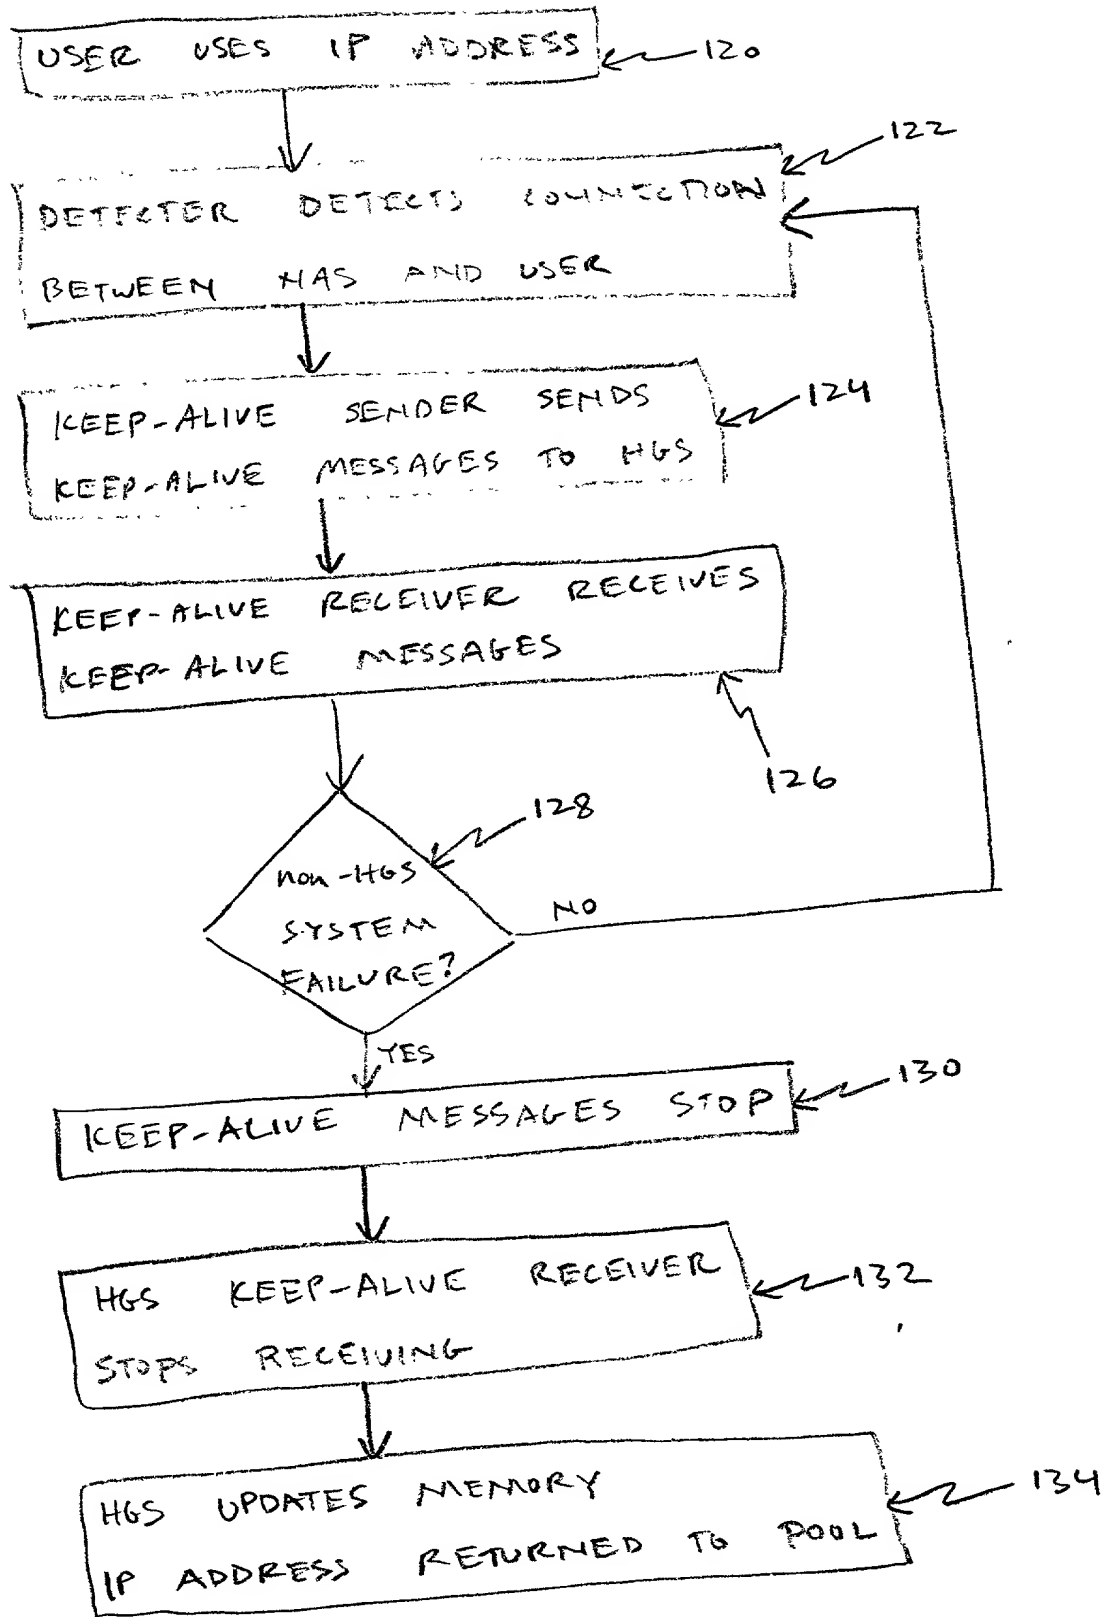 USER USES IP ADDRESS
120
122
DETECTER DETECTS CONNECTION
BETWEEN NAS AND USER
124
KEEP-ALIVE SENDER SENDS
KEEP-ALIVE MESSAGES TO HGS
KEEP-ALIVE RECEIVER RECEIVES
KEEP-ALIVE MESSAGES
126
128
non-HGS
SYSTEM
FAILURE?
NO
YES
130
KEEP-ALIVE MESSAGES STOP
HGS KEEP-ALIVE RECEIVER
STOPS RECEIVING
132
HGS UPDATES MEMORY
IP ADDRESS RETURNED TO POOL
134